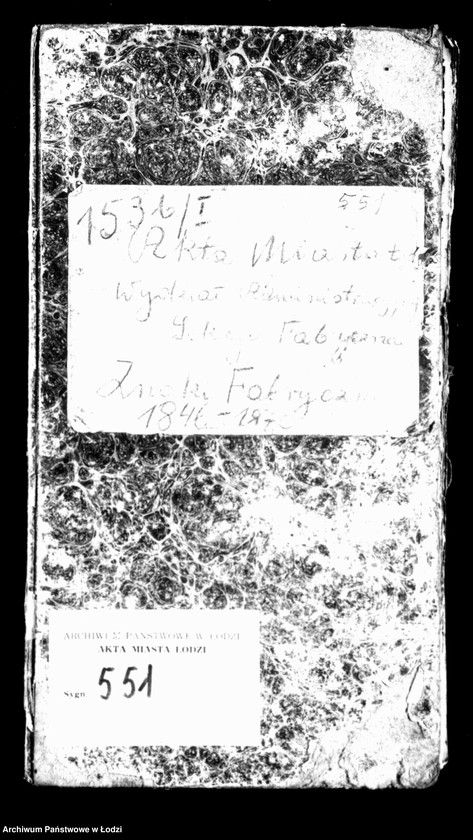 1531b/I 551
Akta Miasta
Wydział Administracyjny
Sekcja Fabryczna
Znaki Fabryczne
184 - 187
ARCHIWUM PAŃSTWOWE W ŁODZI
AKTA MIASTA ŁODZI
Sygn. 551
Archiwum Państwowe w Łodzi